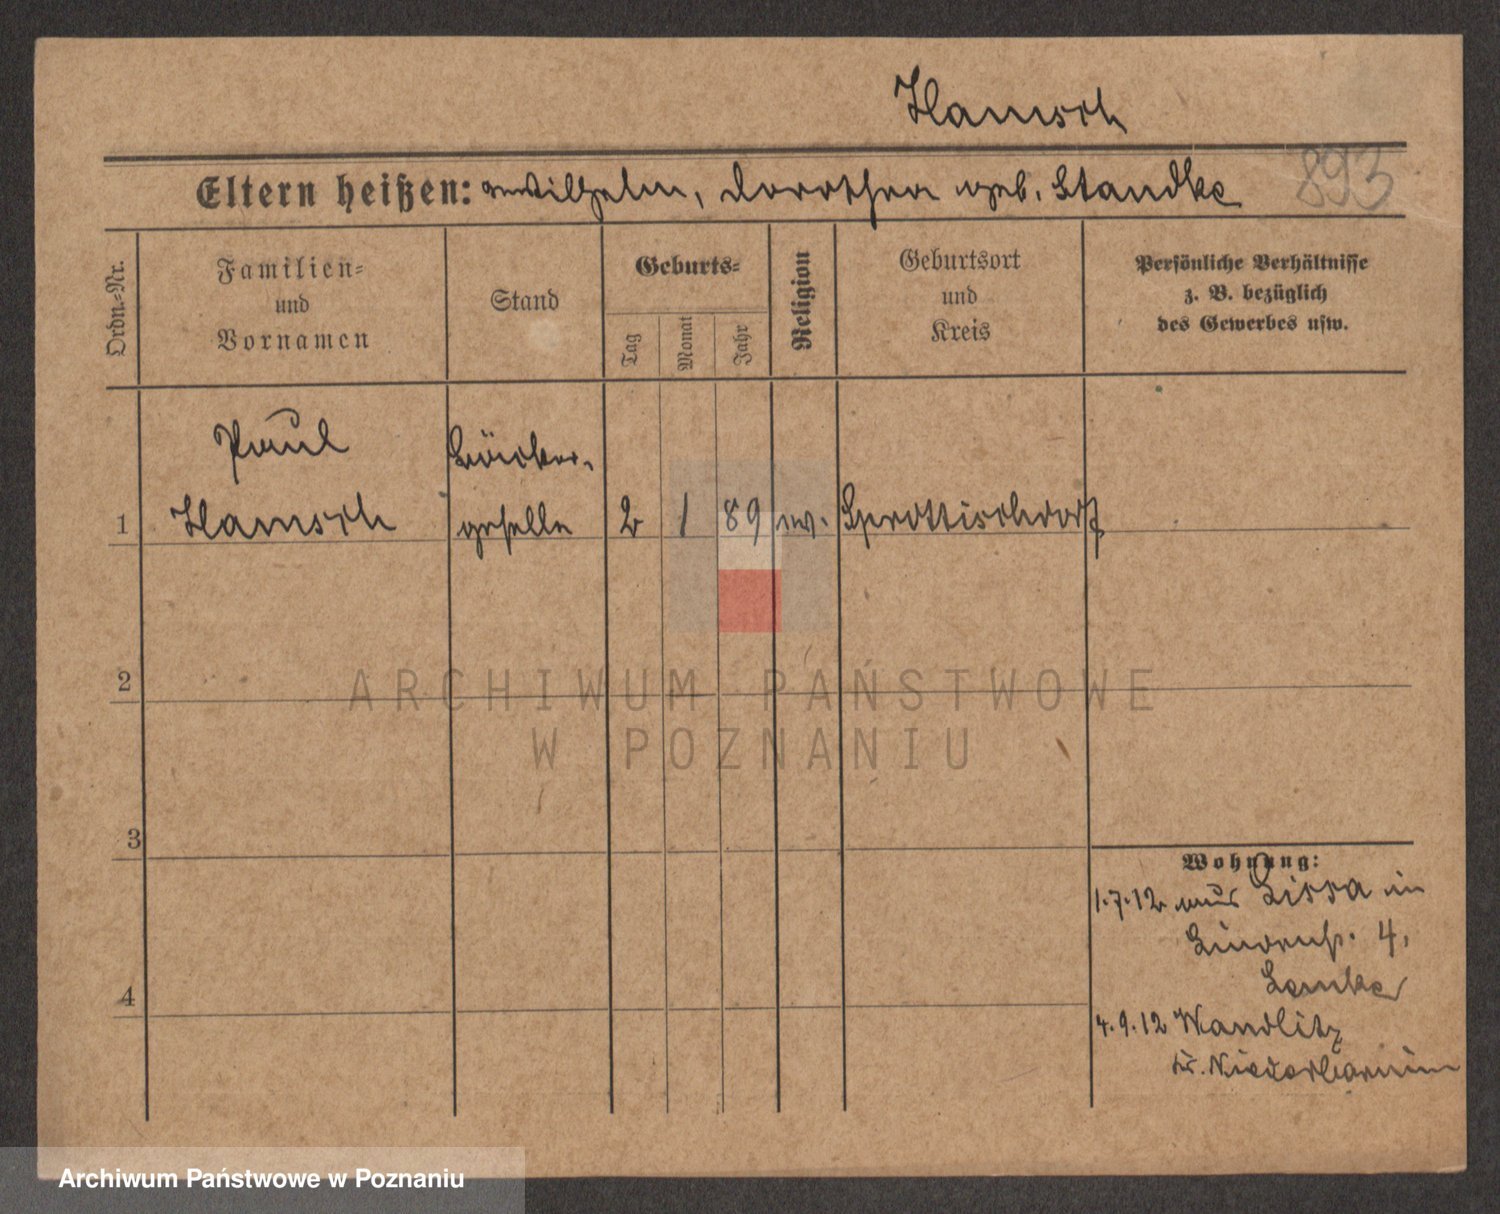 Hamsch
893
Eltern heißen: Wilhelm, Dorothea geb. Standke
Ordn.-Nr.
Familien-
und
Vornamen
Stand
Geburts-
Tag
Monat
Jahr
Religion
Geburtsort
und
Kreis
Persönliche Verhältnisse
z. B. bezüglich
des Gewerbes usw.
Paul
Bäcker-
1 Hamsch geselle 2 1 89 ev. Sprottischdorf
2
3
4
Wohnung:
1.7.12 aus Lissa in
4,
Lemke
4.9.12 Wandlitz
Kr. Niederbarnim
ARCHIWUM PAŃSTWOWE
W POZNANIU
Archiwum Państwowe w Poznaniu